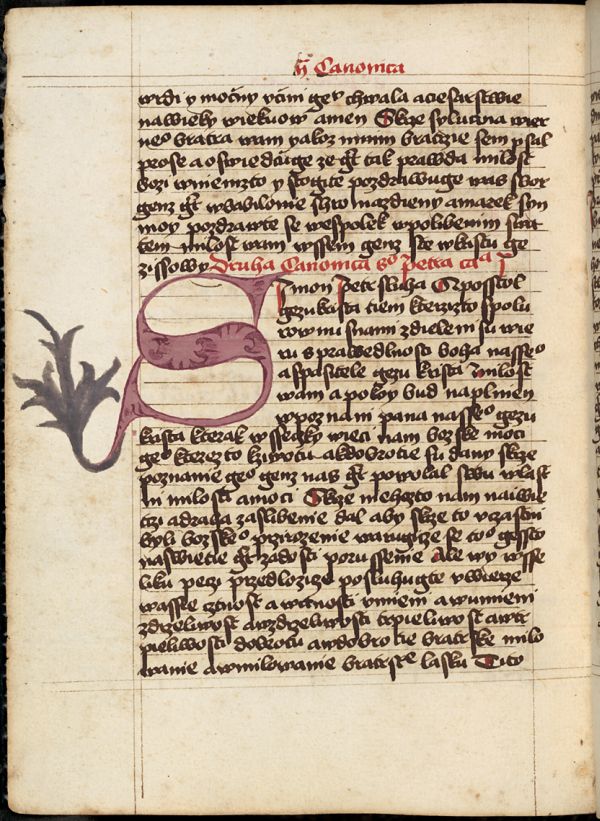 Canonica
wrdi y moczny vczini geᵒ chwala a ciesarstwie
na wieky wiekuow amen Skrze sylwana wier
neᵒ bratra wam yakoz mnim kratcze sem psal
prose a oswiedczuge ze gt tak prawda milost
bozi w niemzto y stogite pozdrawuge was sbor
genz gt w babilonie sebrany a marek syn
moy pozdrawte se wespolek w polibenim swa
tem milost wam wssem genz ste w kristu ge
zissowy Druha Canonica sᵒ Petra caᵃ I
Simon Petr sluha Apposstol
gezukrista tiem kterzizto spolu
rowni s nami zdieleni su wie
ru s prawedlnosti boha nasseᵒ
a spasitele gezu krista milost
wam a pokoy bud naplnien
w poznani pana nasseᵒ gezu
krista kterak wssecky wieci nam bozske moci
geᵒ kterez to k ziwotu a k dobrocie su dany skrze
poznanie geᵒ genz nas gt powolal swu wlast
ni milosti a moci Skrze niehozto nam naiwie
czi a draha zaslibenie dal aby skrze to vczastni
byli bozskeᵒ przirozenie warugicze se toᵒ gessto
na swietie gt zadosti porussenie Ale wy wsse
liku peczi przedlozicze posluhugte v wierze
wassie cztnost a w cztnosti vmieni a w vmieni
zdrzeliwost a w zdrzeliwosti trpieliwost a w tr
pieliwosti dobrotu a w dobrotie bratrske milo
wanie a w milowanie bratrsteᵒ lasku Tito